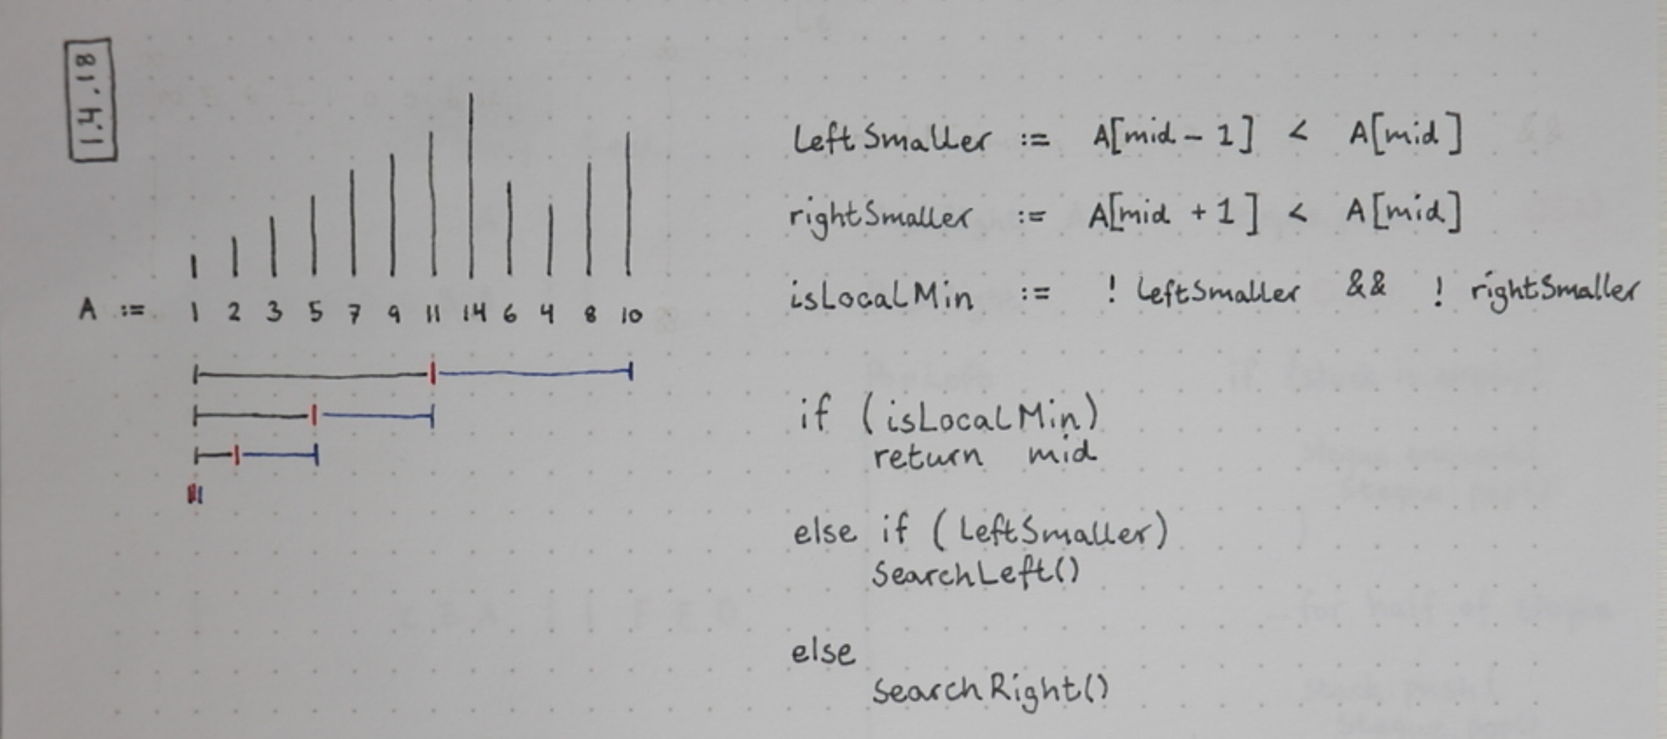 1.4.18
A := 1 2 3 5 7 9 11 14 6 4 8 10
leftSmaller := A[mid - 1] < A[mid]
rightSmaller := A[mid + 1] < A[mid]
isLocalMin := ! leftSmaller && ! rightSmaller
if (isLocalMin)
return mid
else if (leftSmaller)
searchLeft()
else
searchRight()